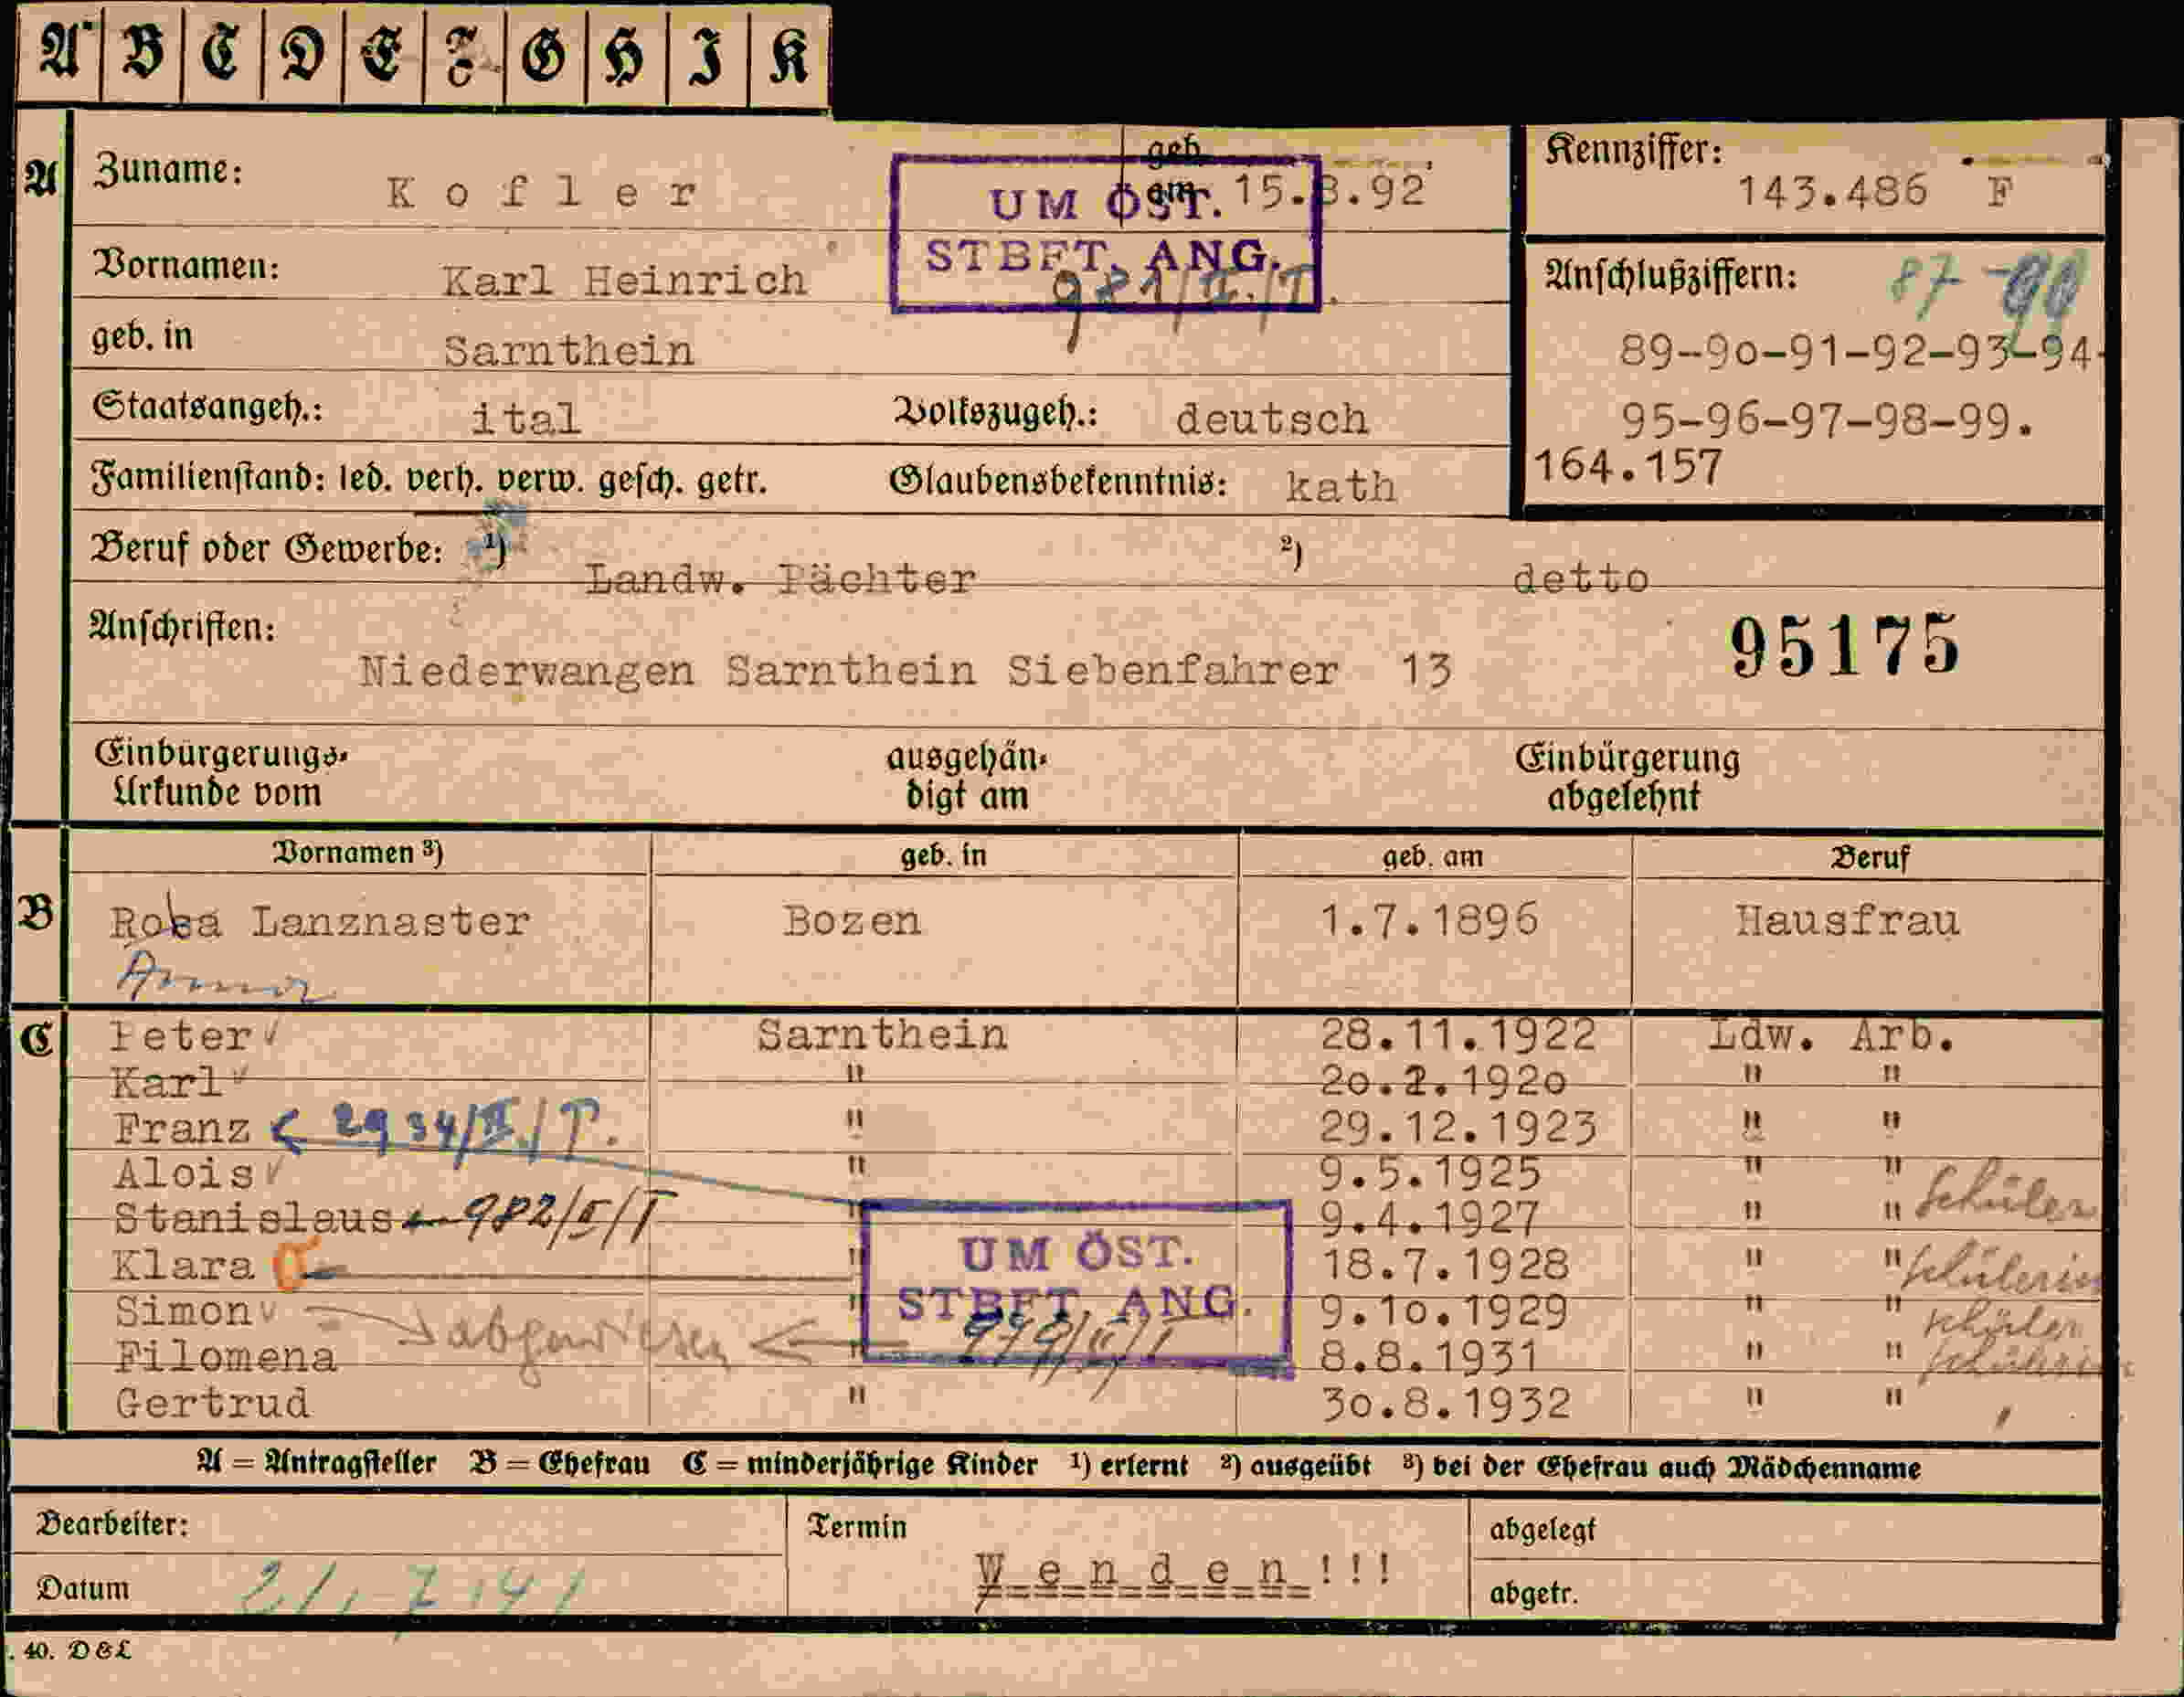 A B C D E F G H I K
A Zuname: K o f l e r geb. am 15.3.92
UM ÖST.
STBFT. ANG.
981/II./T.
Kennziffer:
143.486 F
Vornamen: Karl Heinrich
Anschlußziffern: 87-
89-90-91-92-93-94-
95-96-97-98-99.
164.157
geb. in Sarnthein
Staatsangeh.: ital Volkszugeh.: deutsch
Familienstand: led. verh. verw. gesch. getr. Glaubensbekenntnis: kath
Beruf oder Gewerbe: 1) Landw. Pächter 2) detto
Anschriften:
Niederwangen Sarnthein Siebenfahrer 13
95175
Einbürgerungs-Urkunde vom ausgehändigt am Einbürgerung abgelehnt
Vornamen 3) geb. in geb. am Beruf
B Rosa Lanznaster Bozen 1.7.1896 Hausfrau
C Peter Sarnthein 28.11.1922 Ldw. Arb.
Karl " 20.2.1920 " "
Franz < 2934/II./T. " 29.12.1923 " "
Alois " 9.5.1925 " "
Stanislaus 982/II/T " 9.4.1927 " " Schüler
Klara " 18.7.1928 " " Schülerin
Simon " 9.10.1929 " " Schüler
abgewiesen
Filomena " 8.8.1931 " " Schülerin
Gertrud " 30.8.1932 " " "
UM ÖST.
STBFT. ANG.
A = Antragsteller B = Ehefrau C = minderjährige Kinder 1) erlernt 2) ausgeübt 3) bei der Ehefrau auch Mädchenname
Bearbeiter: Termin abgelegt
W e n d e n !!!
Datum 21.7.41 abgetr.
. 40. D&L